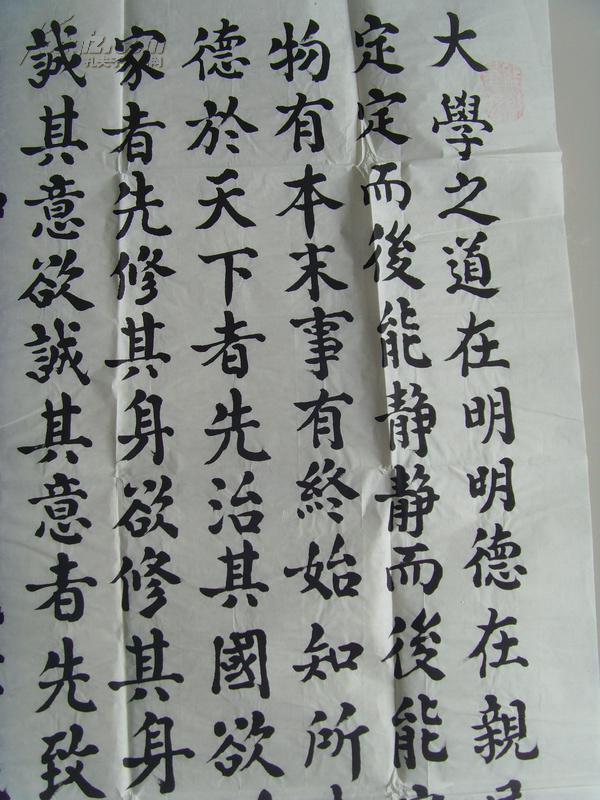 大學之道在明明德在親
定定而後能静静而後能
物有本末事有終始知所
德於天下者先治其國欲
家者先修其身欲修其身
誠其意欲誠其意者先致